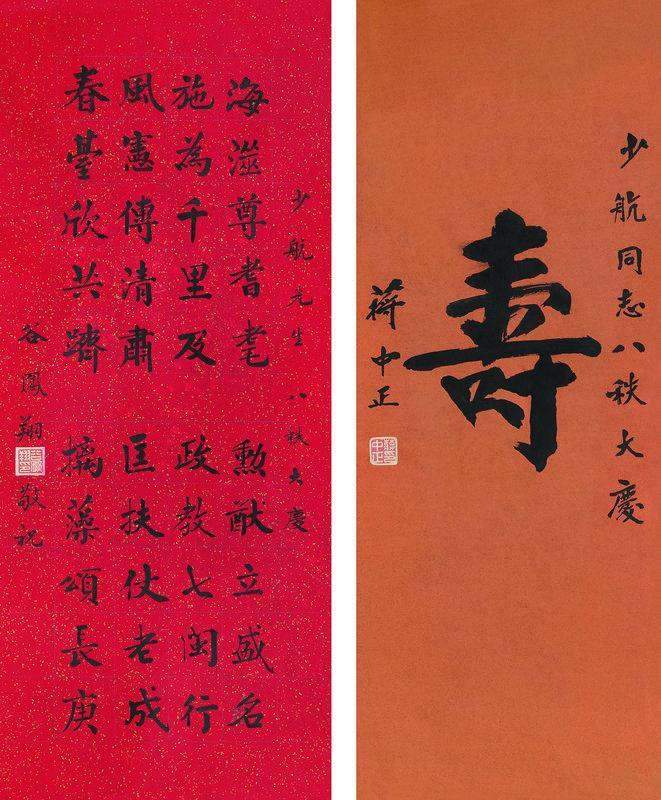 少航同志八秩大慶
壽
蔣中正
少航先生八秩大慶
海澨尊耆耄 勳猷立盛名
施為千里及 政教七閩行
風憲傳清肅 匡扶仗老成
春臺欣共躋 摛藻頌長庚
谷鳳翔 敬祝